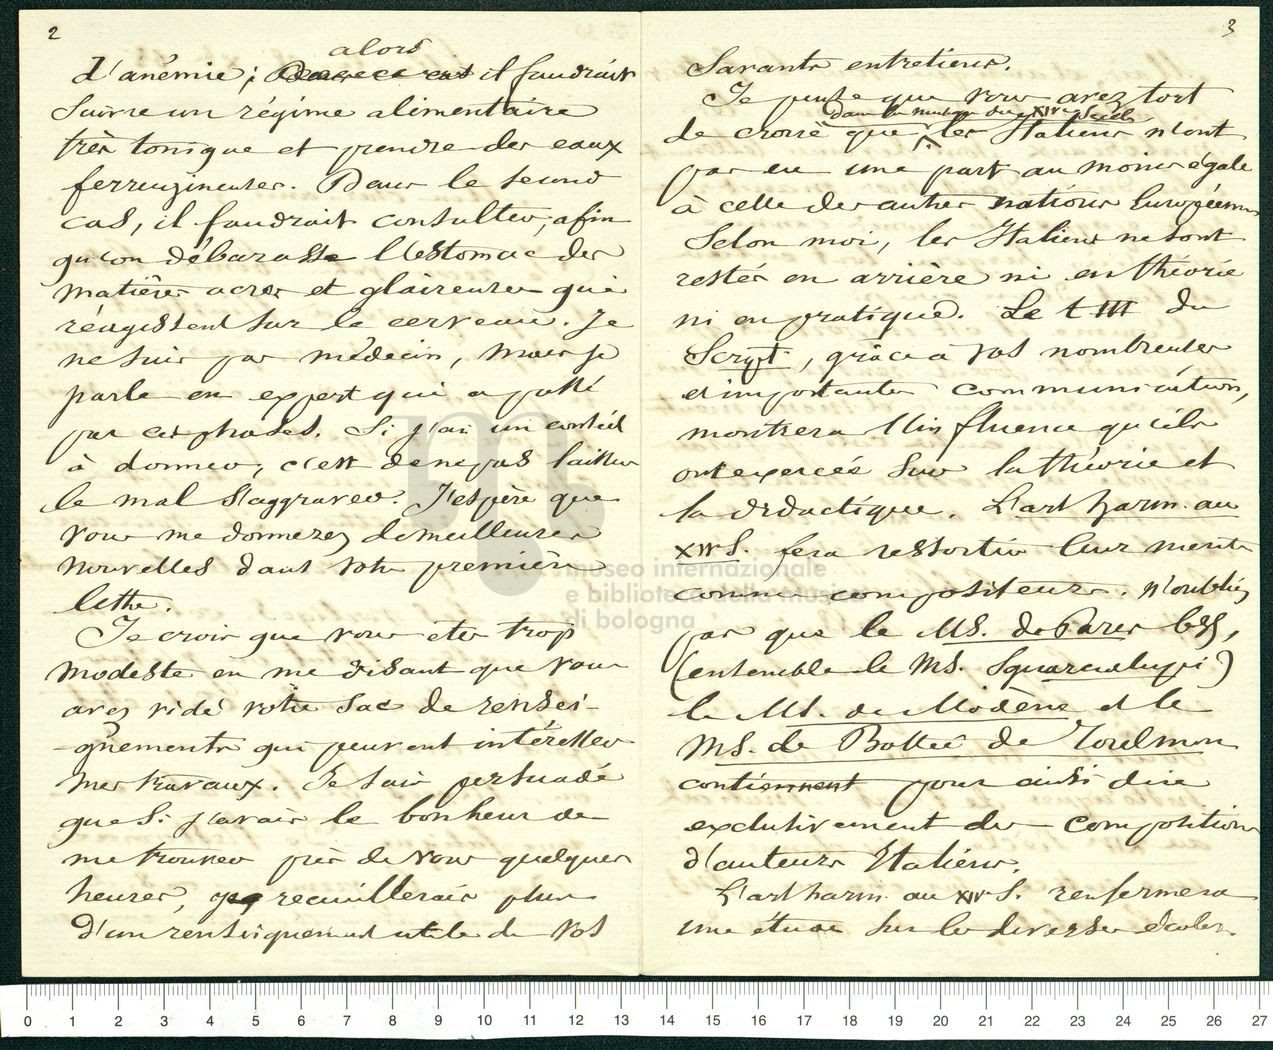 2
alors
d'anémie; il faudrait
suivre un régime alimentaire
très tonique et prendre des eaux
ferrugineuses. Dans le second
cas, il faudrait consulter, afin
qu'on débarasse l'estomac des
matières acres et glaireuses qui
réagissent sur le cerveau. Je
ne suis pas médecin, mais je
parle en expert qui a passé
par ces phases. Si j'ai un conseil
à donner, c'est de ne pas laisser
le mal s'aggraver. J'espère que
vous me donnerez de meilleures
nouvelles dans votre première
lettre.
Je crois que vous êtes trop
modeste en me disant que vous
avez vidé votre sac de rensei-
gnements qui peuvent intéresser
mes travaux. Je suis persuadé
que si j'avais le bonheur de
me trouver près de vous quelques
heures, je recueillerais plus
d'un renseignement utile de vos
3
savants entretiens.
Je pense que vous avez tort
dans la musique du XIVe siècle
de croire que les Italiens n'ont
pas eu une part au moins égale
à celle des autres nations Européennes
Selon moi, les Italiens ne sont
restés en arrière ni en théorie
ni en pratique. Le t III du
Script., grâce à vos nombreuses
et importantes communications,
montrera l'influence qu'ils
ont exercée sur la théorie et
la didactique. L'art harm. au
XIV S. fera ressortir leur mérite
comme compositeurs. N'oubliez
pas que le MS. de Paris 658,
(ensemble le MS. Squarcialupi)
le MS. de Modène et le
MS. de Bottée de Toulmon
contiennent pour ainsi dire
exclusivement des compositions
d'auteurs Italiens.
L'art harm. au XIV S. renfermera
une étude sur les diverses écoles.
museo internazionale
e biblioteca della musica
di bologna
0 1 2 3 4 5 6 7 8 9 10 11 12 13 14 15 16 17 18 19 20 21 22 23 24 25 26 27